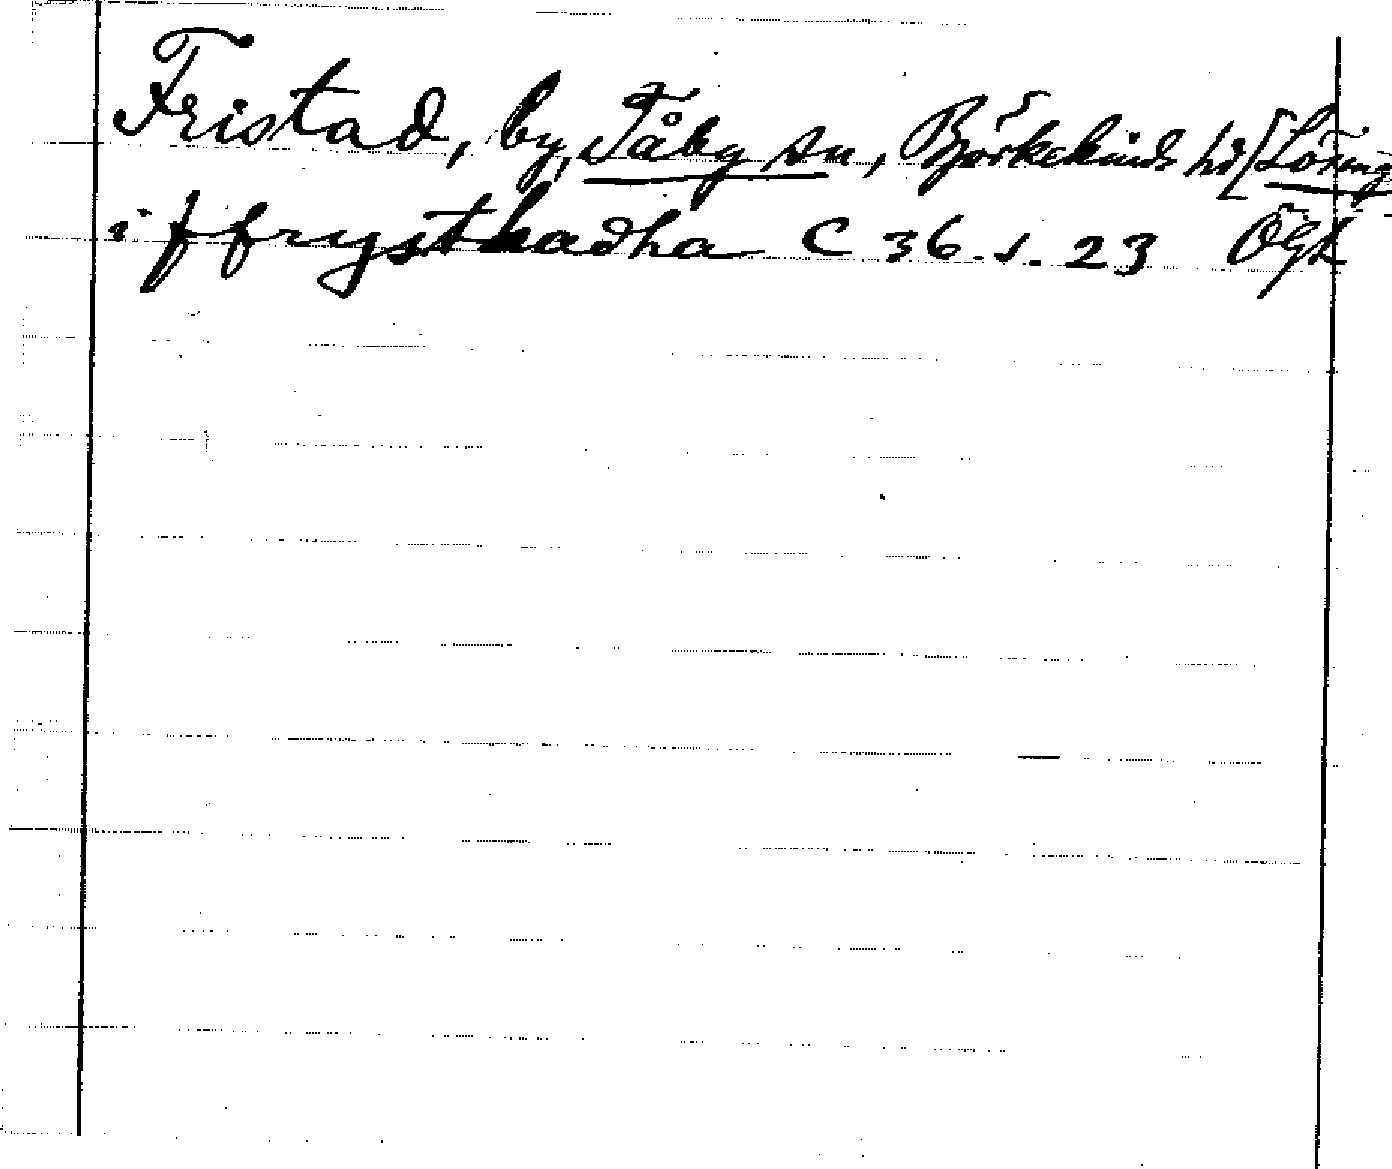 Fristad, by, Tåby sn, Björkekinds hd [Lösing
i ffrysthadha C 36. s. 23 ÖgL